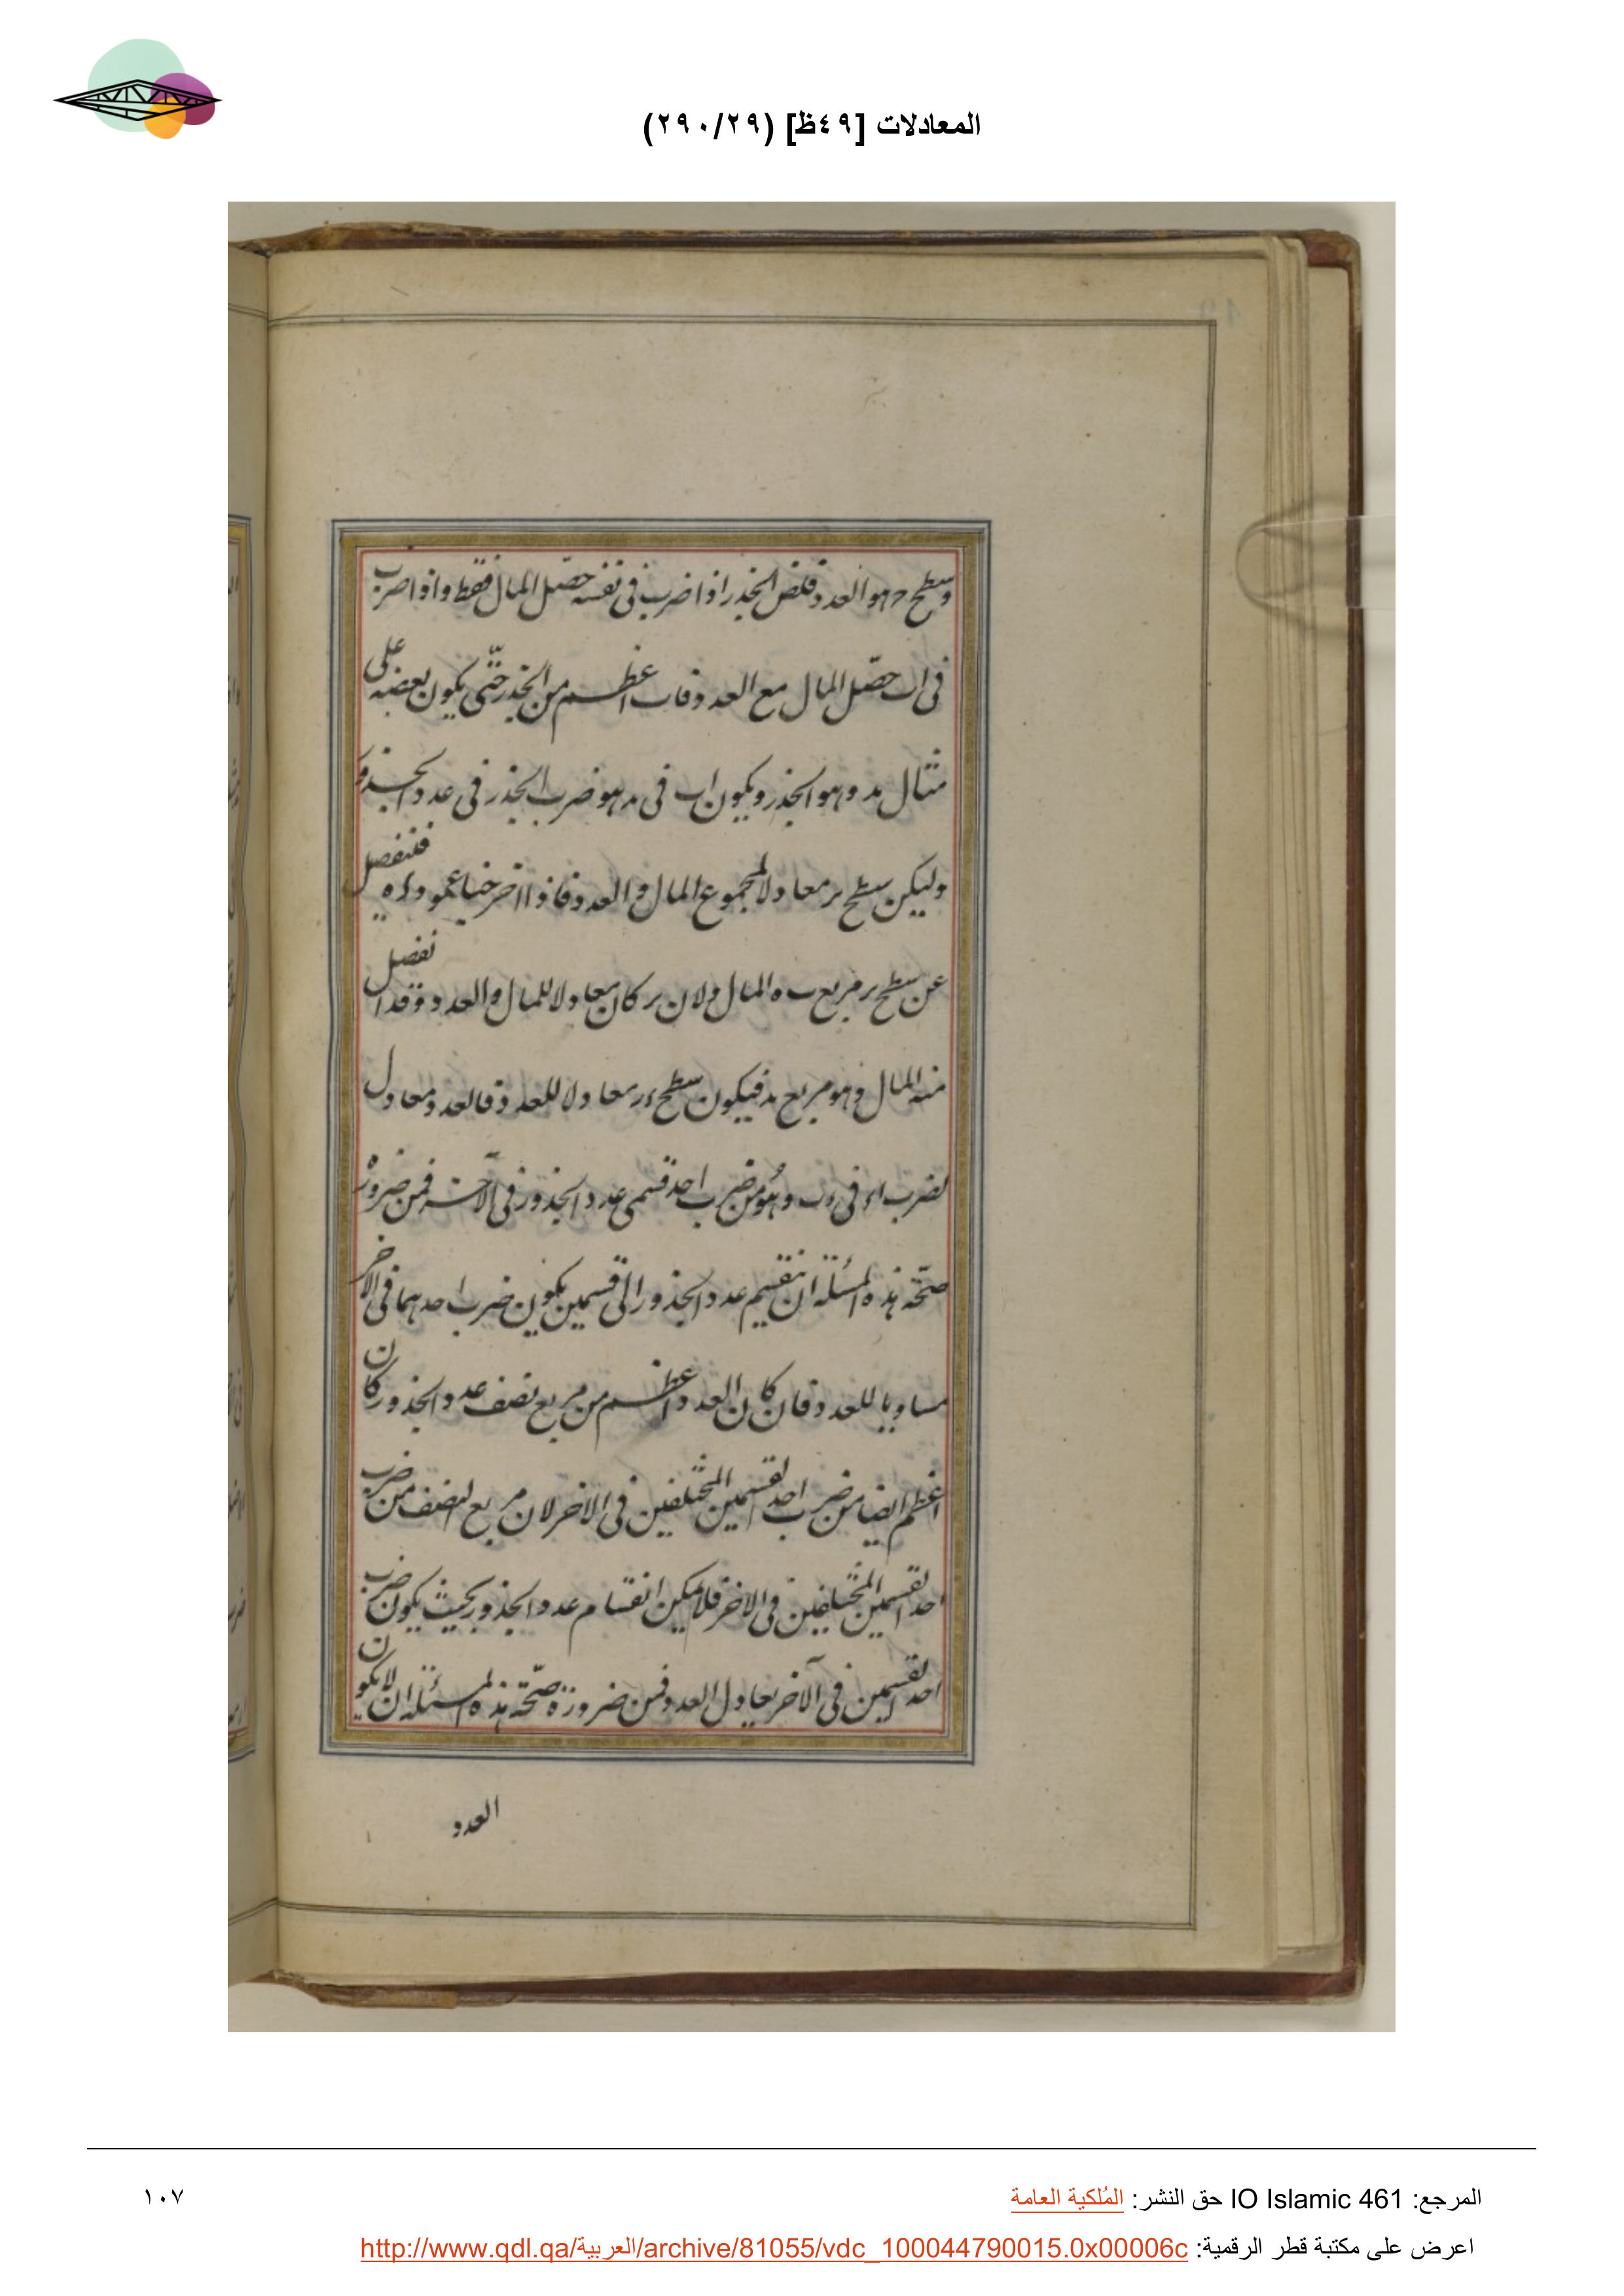 المعادلات [٤٩ظ] (٢٩٠/٢٩)
وسطح ح‍ هو العدد فلضن الجذر اذا ضرب فى نفسه حصّل المال فقط واذا ضرب
فى اب حصّل المال مع العدد فاب اعظم من الجذر حتّى يكون بعضه على
مثال مد وهو الجذر ويكون اب فى مد هو ضرب الجذر فى عدد الجذور
وليكن سطح بر معادلا لمجموع المال والعدد فاذا اخرجنا عمود ءه فنفصل
عن سطح بر مربع ب ه المال ولان بر كان معادلا للمال والعدد وقد انفصل
منه المال وهو مربع مد فيكون سطح ءر معادلا للعدد فالعدد معادل
لضرب اء فى ءب وهو من ضرب احد قسمى عدد الجذور فى الآخر فمن ضرورة
صحّة هذه المسئلة ان ينقسم عدد الجذور الى قسمين يكون ضرب احدهما فى الاخر
مساويا للعدد فان كان العدد اعظم من مربع نصف عدد الجذور كان
اعظم ايضا من ضرب احد القسمين المختلفين فى الاخر لان مربع النصف من ضرب
احد القسمين المختلفين فى الاخر فلا يمكن انقسام عدد الجذور بحيث يكون ضرب
احد القسمين فى الآخر يعادل العدد فمن ضرورة صحّة هذه المسئلة ان لا يكون
العدد
المرجع: IO Islamic 461 حق النشر: المُلكية العامة
١٠٧
اعرض على مكتبة قطر الرقمية: http://www.qdl.qa/العربية/archive/81055/vdc_100044790015.0x00006c